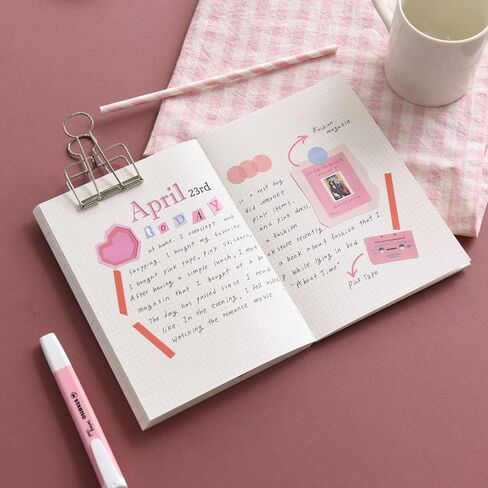 April 23rd
TODAY
it is a rest day
at home. I oversleep and did internet
shopping. I bought my favorite pink items.
I bought pink tape, pink stickers, and pink dress.
After having a simple lunch, I read a fashion
magazin that I bought at a bookstore recently.
The day has passed since I read a book about fashion that I
like. In the evening, I fell asleep while lying in bed
watching the romance movie About Time.
Fashion
magazin
Pink Tape
STABILO
swing cool